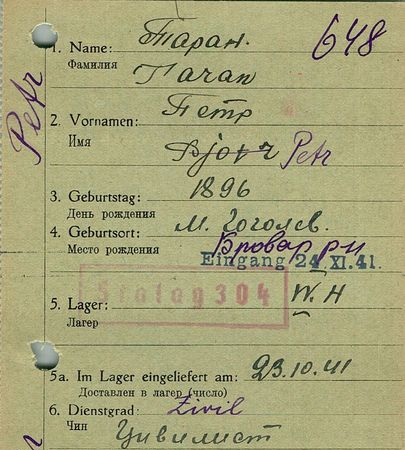 648
1. Name: Таран.
Фамилия
Тачап
Petr
2. Vornamen: Петр
Имя
Pjotr Petr
3. Geburtstag: 1896
День рождения
4. Geburtsort: М. Гоголев.
Место рождения Бровар р-н
Eingang 24. XI. 41.
Stalag 304
5. Lager: W. H
Лагер
5a. Im Lager eingeliefert am: 23.10.41
Доставлен в лагер (число)
6. Dienstgrad: Zivil
Чин Цивилист